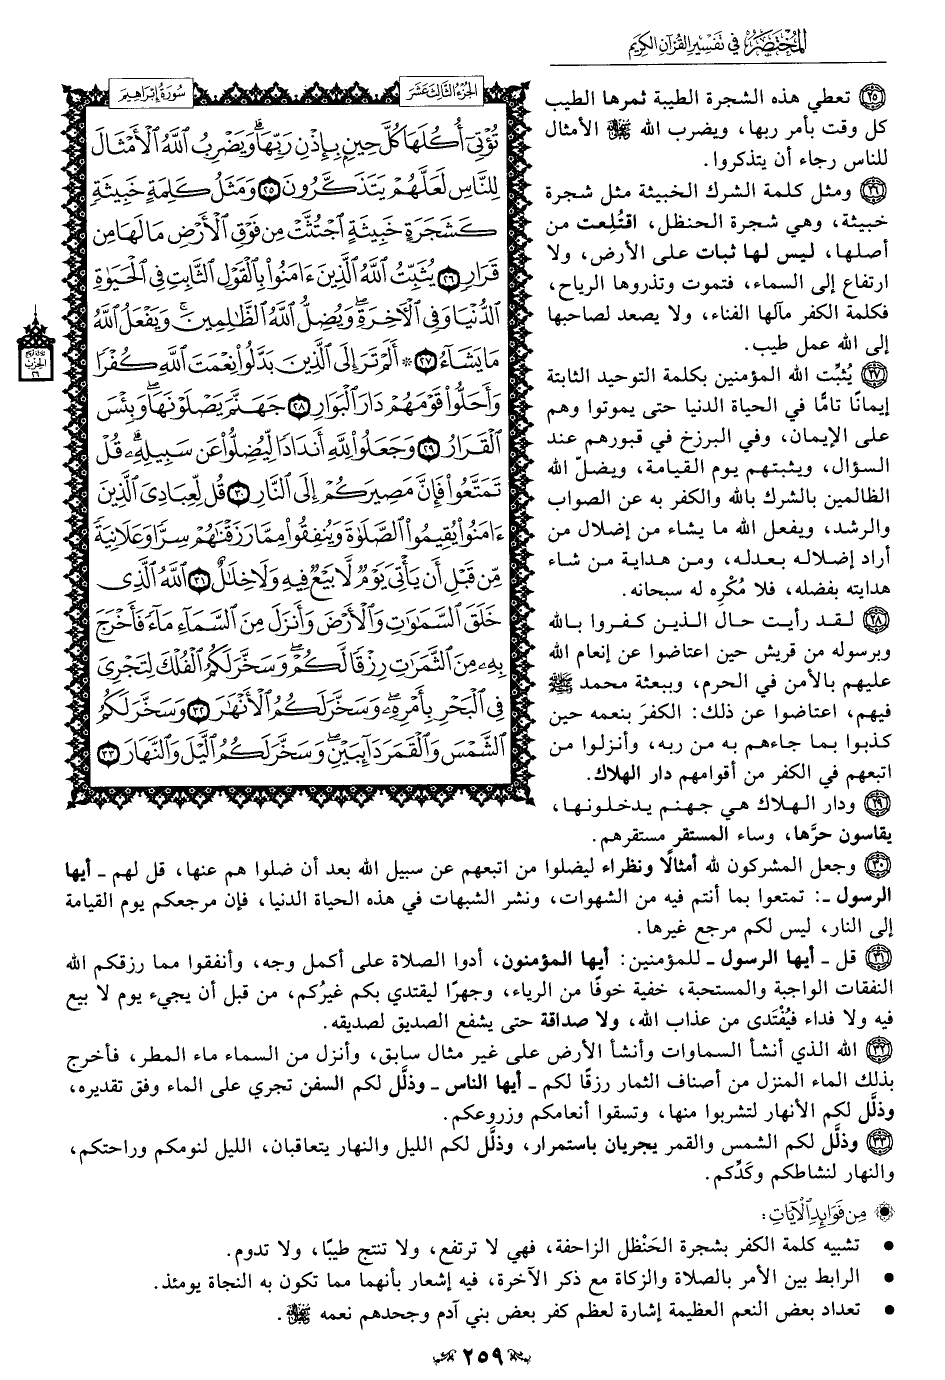 المختصر في تفسير القرآن الكريم
الجزء الثالث عشر
سورة إبراهيم
تُؤْتِىٓ أُكُلَهَا كُلَّ حِينٍۭ بِإِذْنِ رَبِّهَاۗ وَيَضْرِبُ ٱللَّهُ ٱلْأَمْثَالَ
لِلنَّاسِ لَعَلَّهُمْ يَتَذَكَّرُونَ ٢٥ وَمَثَلُ كَلِمَةٍ خَبِيثَةٍ
كَشَجَرَةٍ خَبِيثَةٍ ٱجْتُثَّتْ مِن فَوْقِ ٱلْأَرْضِ مَا لَهَا مِن
قَرَارٍ ٢٦ يُثَبِّتُ ٱللَّهُ ٱلَّذِينَ ءَامَنُوا۟ بِٱلْقَوْلِ ٱلثَّابِتِ فِى ٱلْحَيَوٰةِ
ٱلدُّنْيَا وَفِى ٱلْءَاخِرَةِۖ وَيُضِلُّ ٱللَّهُ ٱلظَّٰلِمِينَۚ وَيَفْعَلُ ٱللَّهُ
مَا يَشَآءُ ٢٧ ۞ أَلَمْ تَرَ إِلَى ٱلَّذِينَ بَدَّلُوا۟ نِعْمَتَ ٱللَّهِ كُفْرًا
وَأَحَلُّوا۟ قَوْمَهُمْ دَارَ ٱلْبَوَارِ ٢٨ جَهَنَّمَ يَصْلَوْنَهَاۖ وَبِئْسَ
ٱلْقَرَارُ ٢٩ وَجَعَلُوا۟ لِلَّهِ أَندَادًا لِّيُضِلُّوا۟ عَن سَبِيلِهِۦۗ قُلْ
تَمَتَّعُوا۟ فَإِنَّ مَصِيرَكُمْ إِلَى ٱلنَّارِ ٣٠ قُل لِّعِبَادِىَ ٱلَّذِينَ
ءَامَنُوا۟ يُقِيمُوا۟ ٱلصَّلَوٰةَ وَيُنفِقُوا۟ مِمَّا رَزَقْنَٰهُمْ سِرًّا وَعَلَانِيَةً
مِّن قَبْلِ أَن يَأْتِىَ يَوْمٌ لَّا بَيْعٌ فِيهِ وَلَا خِلَٰلٌ ٣١ ٱللَّهُ ٱلَّذِى
خَلَقَ ٱلسَّمَٰوَٰتِ وَٱلْأَرْضَ وَأَنزَلَ مِنَ ٱلسَّمَآءِ مَآءً فَأَخْرَجَ
بِهِۦ مِنَ ٱلثَّمَرَٰتِ رِزْقًا لَّكُمْۖ وَسَخَّرَ لَكُمُ ٱلْفُلْكَ لِتَجْرِىَ
فِى ٱلْبَحْرِ بِأَمْرِهِۦۖ وَسَخَّرَ لَكُمُ ٱلْأَنْهَٰرَ ٣٢ وَسَخَّرَ لَكُمُ
ٱلشَّمْسَ وَٱلْقَمَرَ دَآئِبَيْنِۖ وَسَخَّرَ لَكُمُ ٱلَّيْلَ وَٱلنَّهَارَ ٣٣
الحزب
٢٦
٢٥ تعطي هذه الشجرة الطيبة ثمرها الطيب
كل وقت بأمر ربها، ويضرب الله ﷻ الأمثال
للناس رجاء أن يتذكروا.
٢٦ ومثل كلمة الشرك الخبيثة مثل شجرة
خبيثة، وهي شجرة الحنظل، اقتُلِعت من
أصلها، ليس لها ثبات على الأرض، ولا
ارتفاع إلى السماء، فتموت وتذروها الرياح،
فكلمة الكفر مآلها الفناء، ولا يصعد لصاحبها
إلى الله عمل طيب.
٢٧ يُثبِّت الله المؤمنين بكلمة التوحيد الثابتة
إيمانًا تامًّا في الحياة الدنيا حتى يموتوا وهم
على الإيمان، وفي البرزخ في قبورهم عند
السؤال، ويثبتهم يوم القيامة، ويضلّ الله
الظالمين بالشرك بالله والكفر به عن الصواب
والرشد، ويفعل الله ما يشاء من إضلال من
أراد إضلاله بعدله، ومن هداية من شاء
هدايته بفضله، فلا مُكْرِه له سبحانه.
٢٨ لقد رأيت حال الذين كفروا بالله
وبرسوله من قريش حين اعتاضوا عن إنعام الله
عليهم بالأمن في الحرم، وببعثة محمد ﷺ
فيهم، اعتاضوا عن ذلك: الكفرَ بنعمه حين
كذبوا بما جاءهم به من ربه، وأنزلوا من
اتبعهم في الكفر من أقوامهم دار الهلاك.
٢٩ ودار الهلاك هي جهنم يدخلونها،
يقاسون حرَّها، وساء المستقر مستقرهم.
٣٠ وجعل المشركون لله أمثالًا ونظراء ليضلوا من اتبعهم عن سبيل الله بعد أن ضلوا هم عنها، قل لهم ـ أيها
الرسول ـ: تمتعوا بما أنتم فيه من الشهوات، ونشر الشبهات في هذه الحياة الدنيا، فإن مرجعكم يوم القيامة
إلى النار، ليس لكم مرجع غيرها.
٣١ قل ـ أيها الرسول ـ للمؤمنين: أيها المؤمنون، أدوا الصلاة على أكمل وجه، وأنفقوا مما رزقكم الله
النفقات الواجبة والمستحبة، خفية خوفًا من الرياء، وجهرًا ليقتدي بكم غيرُكم، من قبل أن يجيء يوم لا بيع
فيه ولا فداء فيُفْتَدى من عذاب الله، ولا صداقة حتى يشفع الصديق لصديقه.
٣٢ الله الذي أنشأ السماوات وأنشأ الأرض على غير مثال سابق، وأنزل من السماء ماء المطر، فأخرج
بذلك الماء المنزل من أصناف الثمار رزقًا لكم ـ أيها الناس ـ وذلَّل لكم السفن تجري على الماء وفق تقديره،
وذلَّل لكم الأنهار لتشربوا منها، وتسقوا أنعامكم وزروعكم.
٣٣ وذلَّل لكم الشمس والقمر يجريان باستمرار، وذلَّل لكم الليل والنهار يتعاقبان، الليل لنومكم وراحتكم،
والنهار لنشاطكم وكَدِّكم.
مِن فَوَائِدِ الآيَاتِ:
● تشبيه كلمة الكفر بشجرة الحَنْظل الزاحفة، فهي لا ترتفع، ولا تنتج طيبًا، ولا تدوم.
● الرابط بين الأمر بالصلاة والزكاة مع ذكر الآخرة، فيه إشعار بأنهما مما تكون به النجاة يومئذ.
● تعداد بعض النعم العظيمة إشارة لعظم كفر بعض بني آدم وجحدهم نعمه ﷻ.
٢٥٩